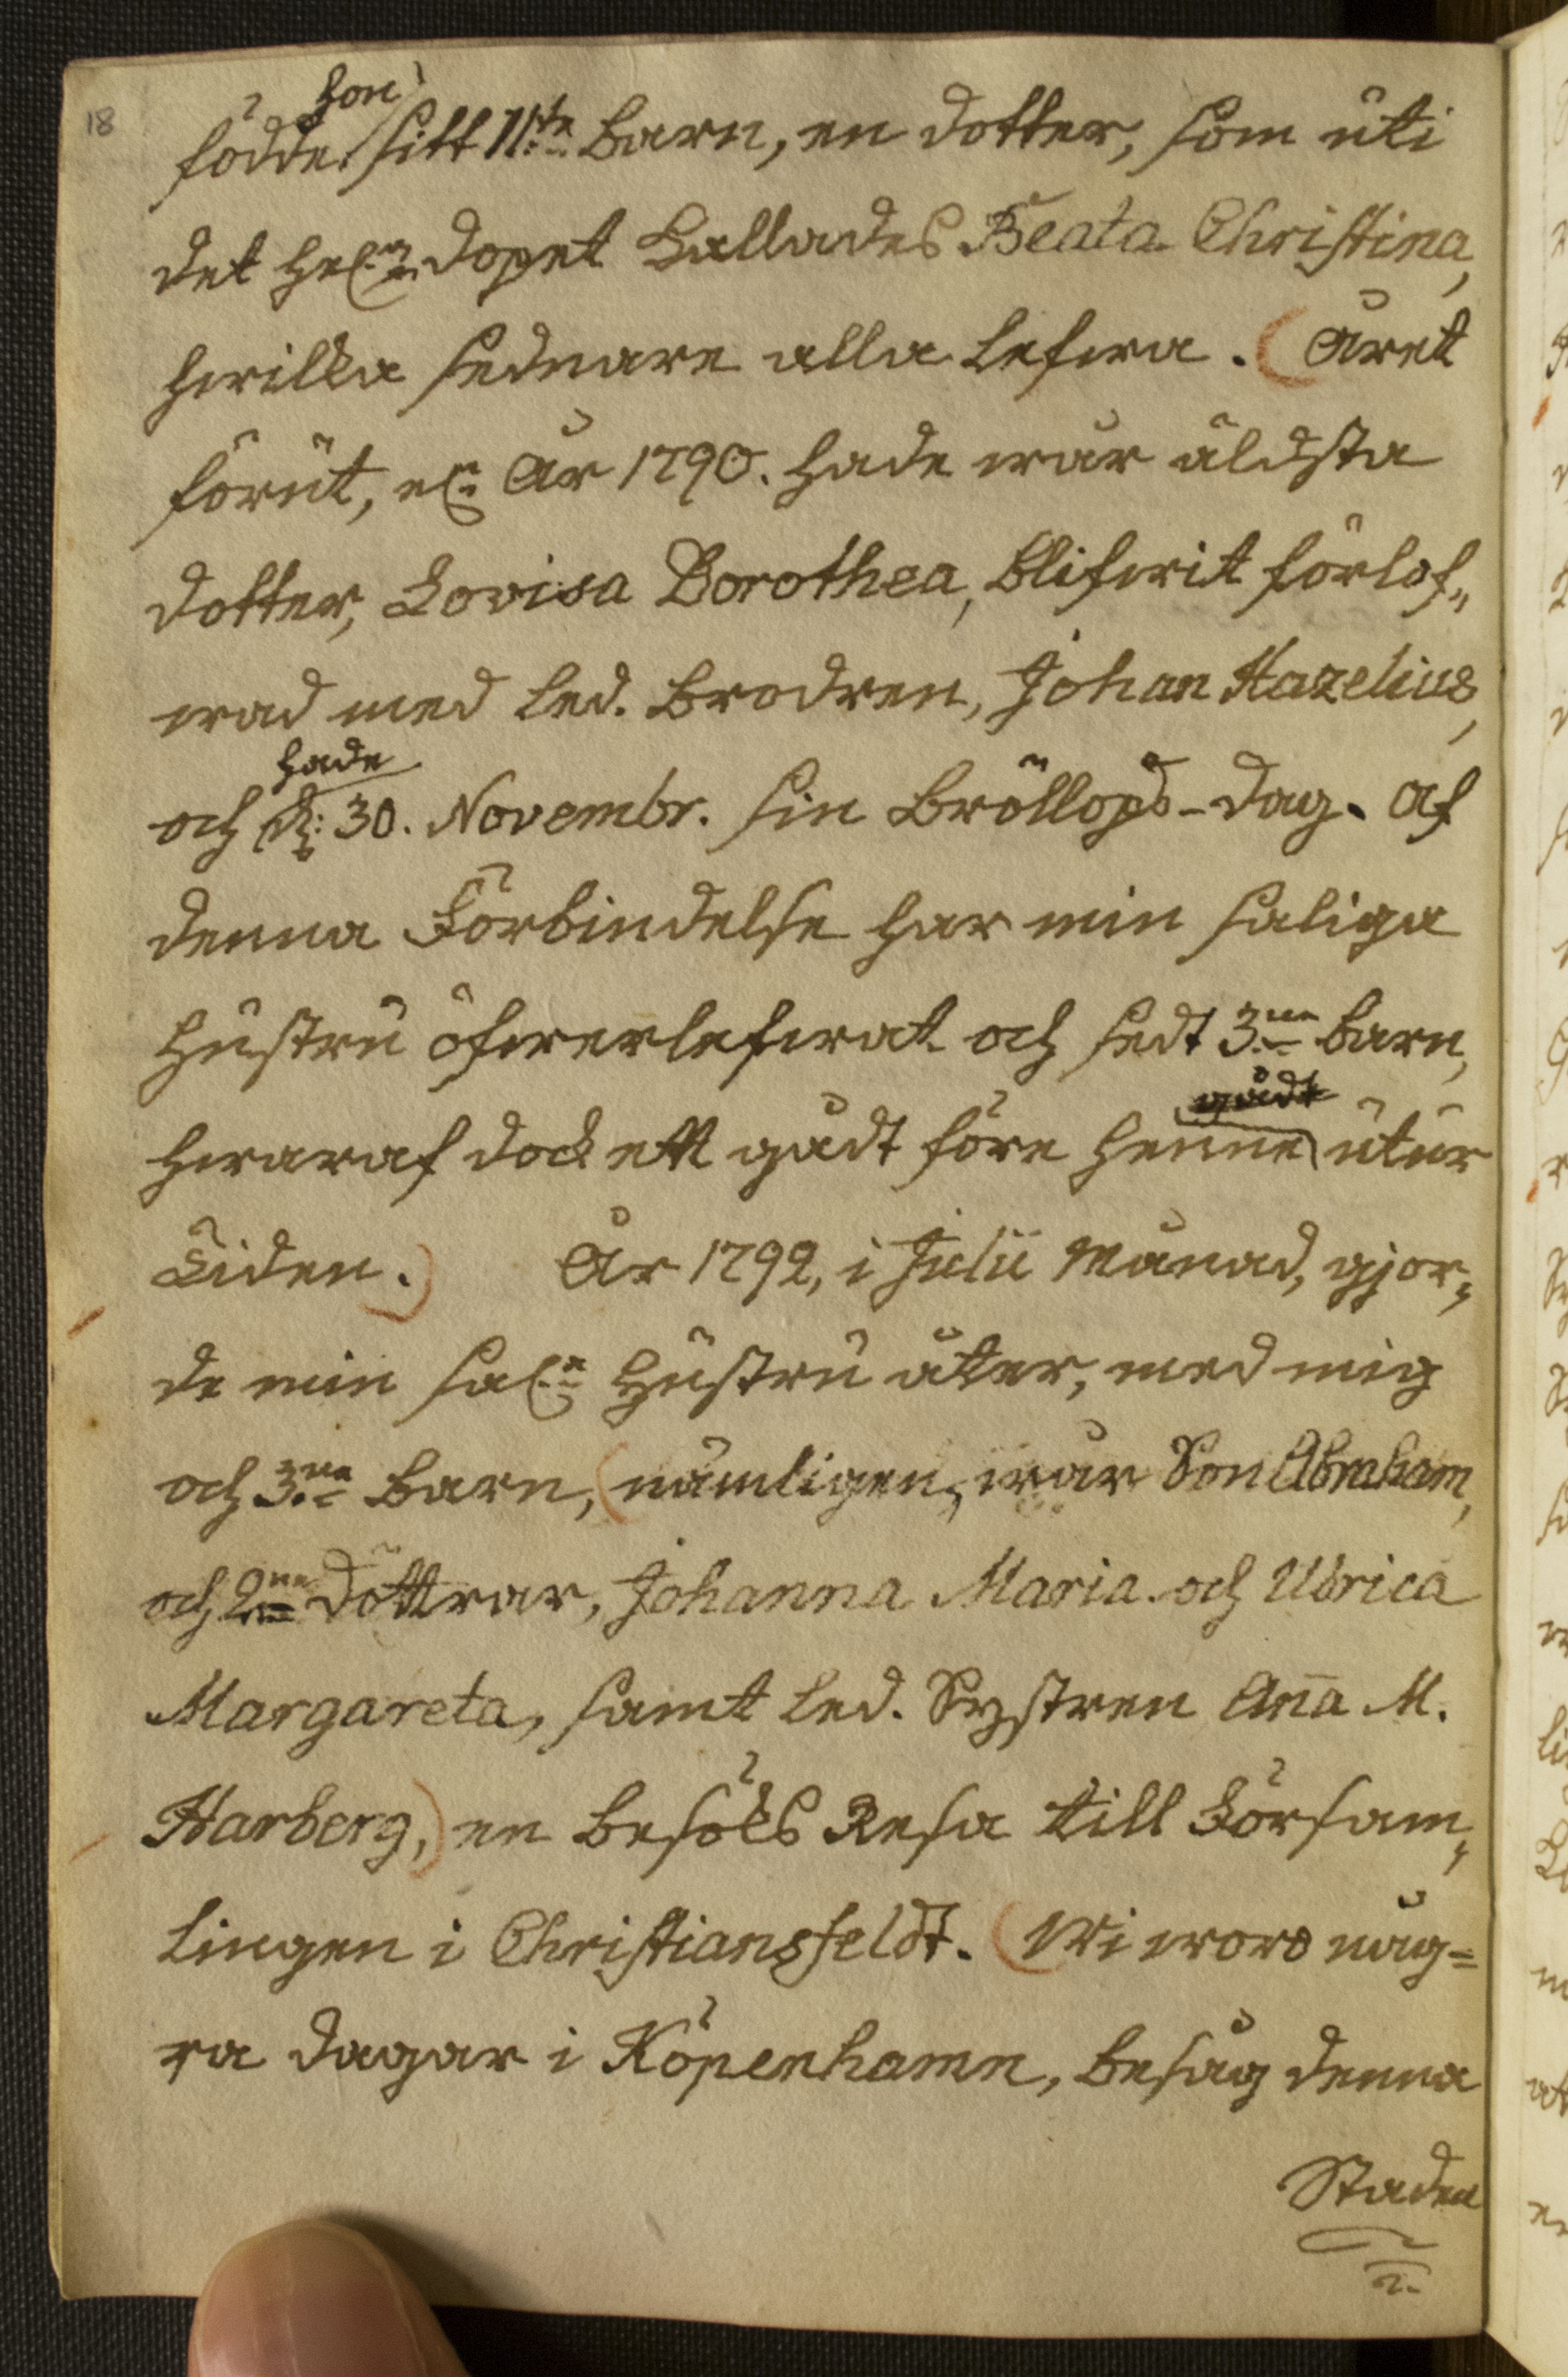 18
hon
födde sitt 11:te Barn, en dotter, som uti
det hel:a dopet kallades Beata Christina,
hvilka sednare alla lefva. (Året
förut, el:r År 1790. hade wår äldsta
dotter, Lovisa Dorothea, blifwit förlof„
wad med led. Brodren, Johan Hazelius,
hade
och d: 30. Novembr. sin Bröllops-dag. Af
denna Förbindelse har min saliga
Hustru öfwerlefwat och sedt 3:ne barn,
gådt
hwaraf dock ett gådt före henne utur
Tiden.) År 1792, i Julii Månad, gjor„
de min sal:a Hustru åter, med mig
och 3:ne Barn, (nämligen, wår Son Abraham,
och 2:ne döttrar, Johanna Maria och Ulrica
Margareta, samt led. Systren Ana M.
Harberg,) en Besöks Resa till Försam„
lingen i Christiansfeldt. (Wi woro någ=
ra dagar i Köpenhamn, besåg denna
Staden